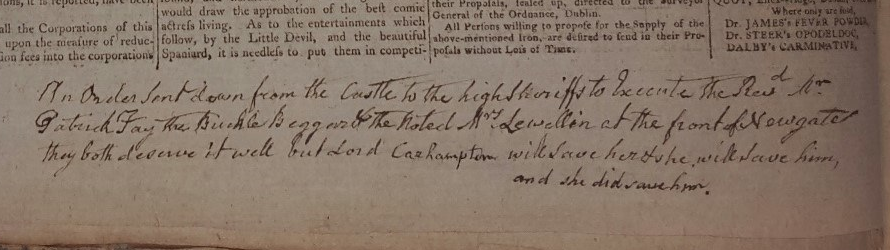 would draw the approbation of the best comic
actress living. As to the entertainments which
follow, by the Little Devil, and the beautiful
Spaniard, it is needless to put them in competi-
all the Corporations of this
upon the measure of reduc-
ion fees into the corporations
their Proposals, sealed up, directed to the Surveyor
General of the Ordnance, Dublin.
All Persons willing to propose for the Supply of the
above-mentioned Iron, are desired to send in their Pro-
posals without Loss of Time.
Where only are sold,
Dr. JAMES's FEVER POWDER,
Dr. STEER's OPODELDOC,
DALBY's CARMINATIVE,
An Order Sent down from the Castle to the high Sherriffs to Execute the Revd Mr
Patrick Fay the Buckle Beggar & the Noted Mrs Lewellin at the front of Newgate
they both deserve it well but Lord Carhampton will save her & she will save him,
and she did save him.